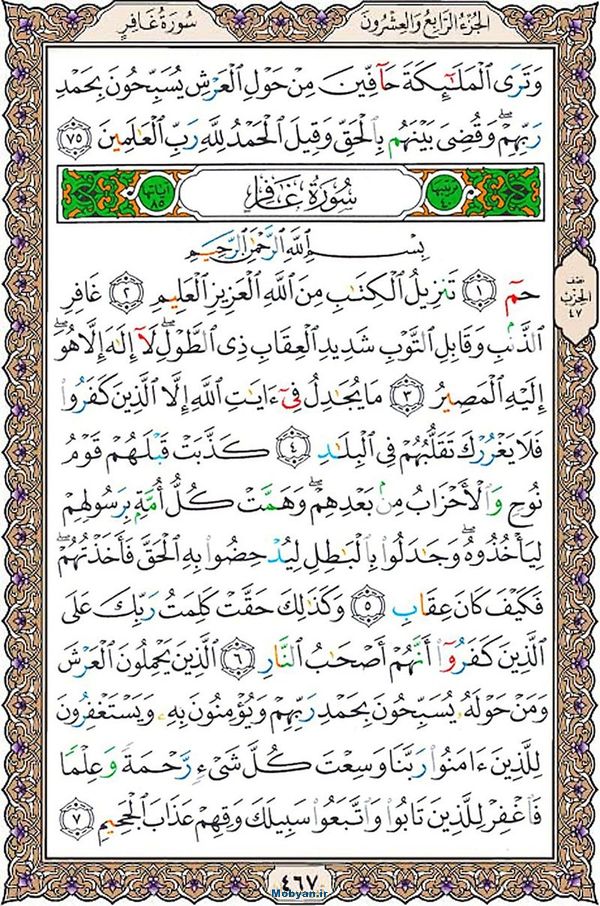 الجزء الرابع والعشرون
سورة غافر
وَتَرَى ٱلْمَلَٰٓئِكَةَ حَآفِّينَ مِنْ حَوْلِ ٱلْعَرْشِ يُسَبِّحُونَ بِحَمْدِ
رَبِّهِمْ ۖ وَقُضِىَ بَيْنَهُم بِٱلْحَقِّ وَقِيلَ ٱلْحَمْدُ لِلَّهِ رَبِّ ٱلْعَٰلَمِينَ ٧٥
ترتيبها ٤٠
سورة غافر
آياتها ٨٥
بِسْمِ ٱللَّهِ ٱلرَّحْمَٰنِ ٱلرَّحِيمِ
حمٓ ١ تَنزِيلُ ٱلْكِتَٰبِ مِنَ ٱللَّهِ ٱلْعَزِيزِ ٱلْعَلِيمِ ٢ غَافِرِ
ٱلذَّنۢبِ وَقَابِلِ ٱلتَّوْبِ شَدِيدِ ٱلْعِقَابِ ذِى ٱلطَّوْلِ ۖ لَآ إِلَٰهَ إِلَّا هُوَ ۖ
إِلَيْهِ ٱلْمَصِيرُ ٣ مَا يُجَٰدِلُ فِىٓ ءَايَٰتِ ٱللَّهِ إِلَّا ٱلَّذِينَ كَفَرُوا۟
فَلَا يَغْرُرْكَ تَقَلُّبُهُمْ فِى ٱلْبِلَٰدِ ٤ كَذَّبَتْ قَبْلَهُمْ قَوْمُ
نُوحٍ وَٱلْأَحْزَابُ مِنۢ بَعْدِهِمْ ۖ وَهَمَّتْ كُلُّ أُمَّةٍۭ بِرَسُولِهِمْ
لِيَأْخُذُوهُ ۖ وَجَٰدَلُوا۟ بِٱلْبَٰطِلِ لِيُدْحِضُوا۟ بِهِ ٱلْحَقَّ فَأَخَذْتُهُمْ ۖ
فَكَيْفَ كَانَ عِقَابِ ٥ وَكَذَٰلِكَ حَقَّتْ كَلِمَتُ رَبِّكَ عَلَى
ٱلَّذِينَ كَفَرُوٓا۟ أَنَّهُمْ أَصْحَٰبُ ٱلنَّارِ ٦ ٱلَّذِينَ يَحْمِلُونَ ٱلْعَرْشَ
وَمَنْ حَوْلَهُۥ يُسَبِّحُونَ بِحَمْدِ رَبِّهِمْ وَيُؤْمِنُونَ بِهِۦ وَيَسْتَغْفِرُونَ
لِلَّذِينَ ءَامَنُوا۟ رَبَّنَا وَسِعْتَ كُلَّ شَىْءٍ رَّحْمَةً وَعِلْمًا
فَٱغْفِرْ لِلَّذِينَ تَابُوا۟ وَٱتَّبَعُوا۟ سَبِيلَكَ وَقِهِمْ عَذَابَ ٱلْجَحِيمِ ٧
نصف
الحزب
٤٧
٤٦٧
Mobyan.ir